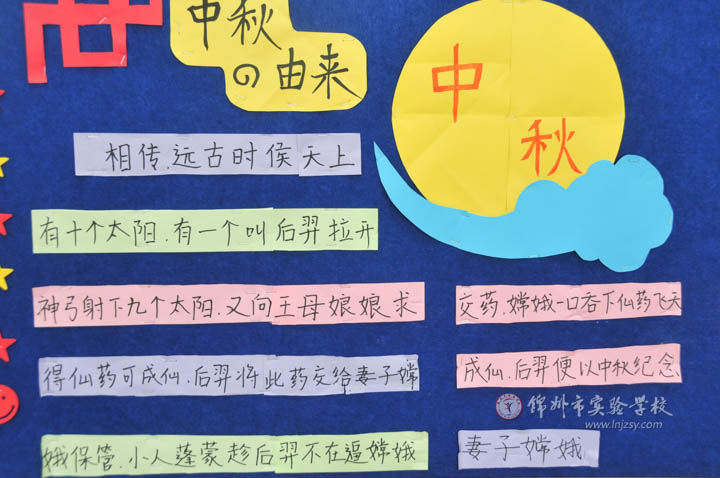 中秋
の由来
中
秋
相传.远古时侯天上
有十个太阳.有一个叫后羿拉开
神弓射下九个太阳.又向王母娘娘求
得仙药可成仙.后羿将此药交给妻子嫦
娥保管.小人蓬蒙趁后羿不在逼嫦娥
交药.嫦娥一口吞下仙药飞天
成仙.后羿便以中秋纪念
妻子嫦娥
锦州市实验学校
www.lnjzsy.com